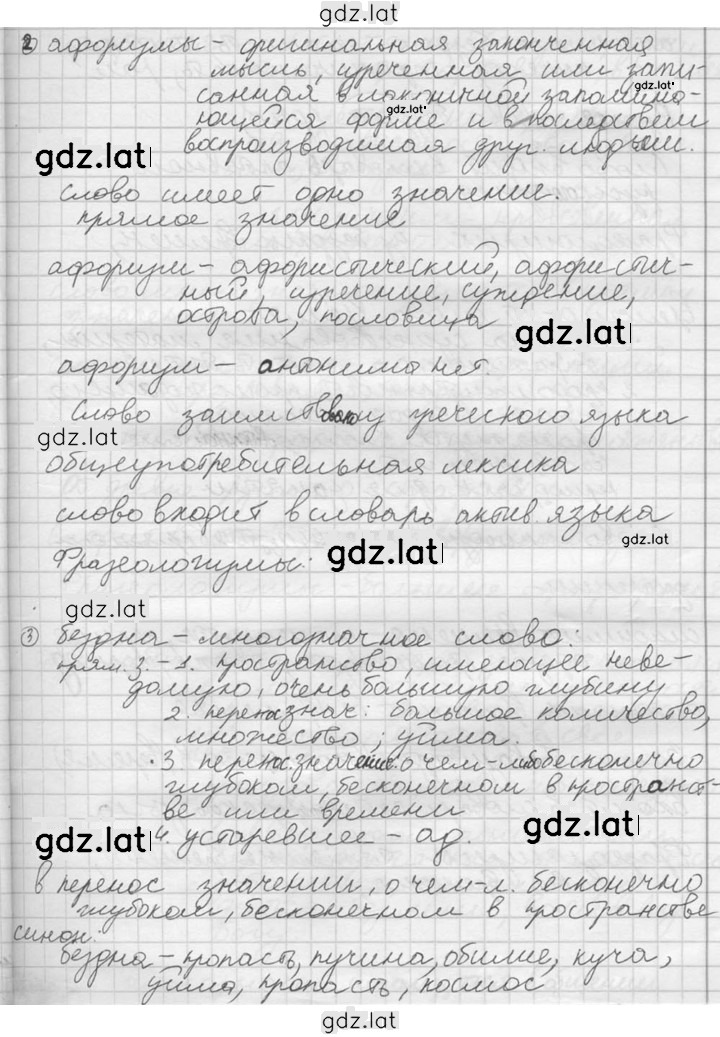 gdz.lat
2) афоризмы - оригинальная законченная
мысль, изреченная или запи-
gdz.lat
санная в лаконичной запомина-
gdz.lat
ющейся форме и впоследствии
воспроизводимая друг. людьми.
gdz.lat
слово имеет одно значение.
прямое значение
афоризм - афористический, афористич-
ный, изречение, суждение,
острота, пословица
gdz.lat
афоризм - антонима нет.
Слово заимствовано у греческого языка
gdz.lat
общеупотребительная лексика
слово входит в словарь актив. языка
gdz.lat
Фразеологизмы:
gdz.lat
gdz.lat
3) бездна - многозначное слово:
прям. з. - 1. пространство, имеющее неве-
домую, очень большую глубину
2. перенос знач: большое количество,
множество; уйма.
3 перенос. значение: о чем-либо бесконечно
глубоком, бесконечном в пространст-
ве или времени
gdz.lat
gdz.lat
4. устаревшее - ад.
в перенос значении, о чем-л. бесконечно
глубоком, бесконечном в пространстве
синон.
бездна - пропасть, пучина, обилие, куча,
уйма, пропасть, космос
gdz.lat